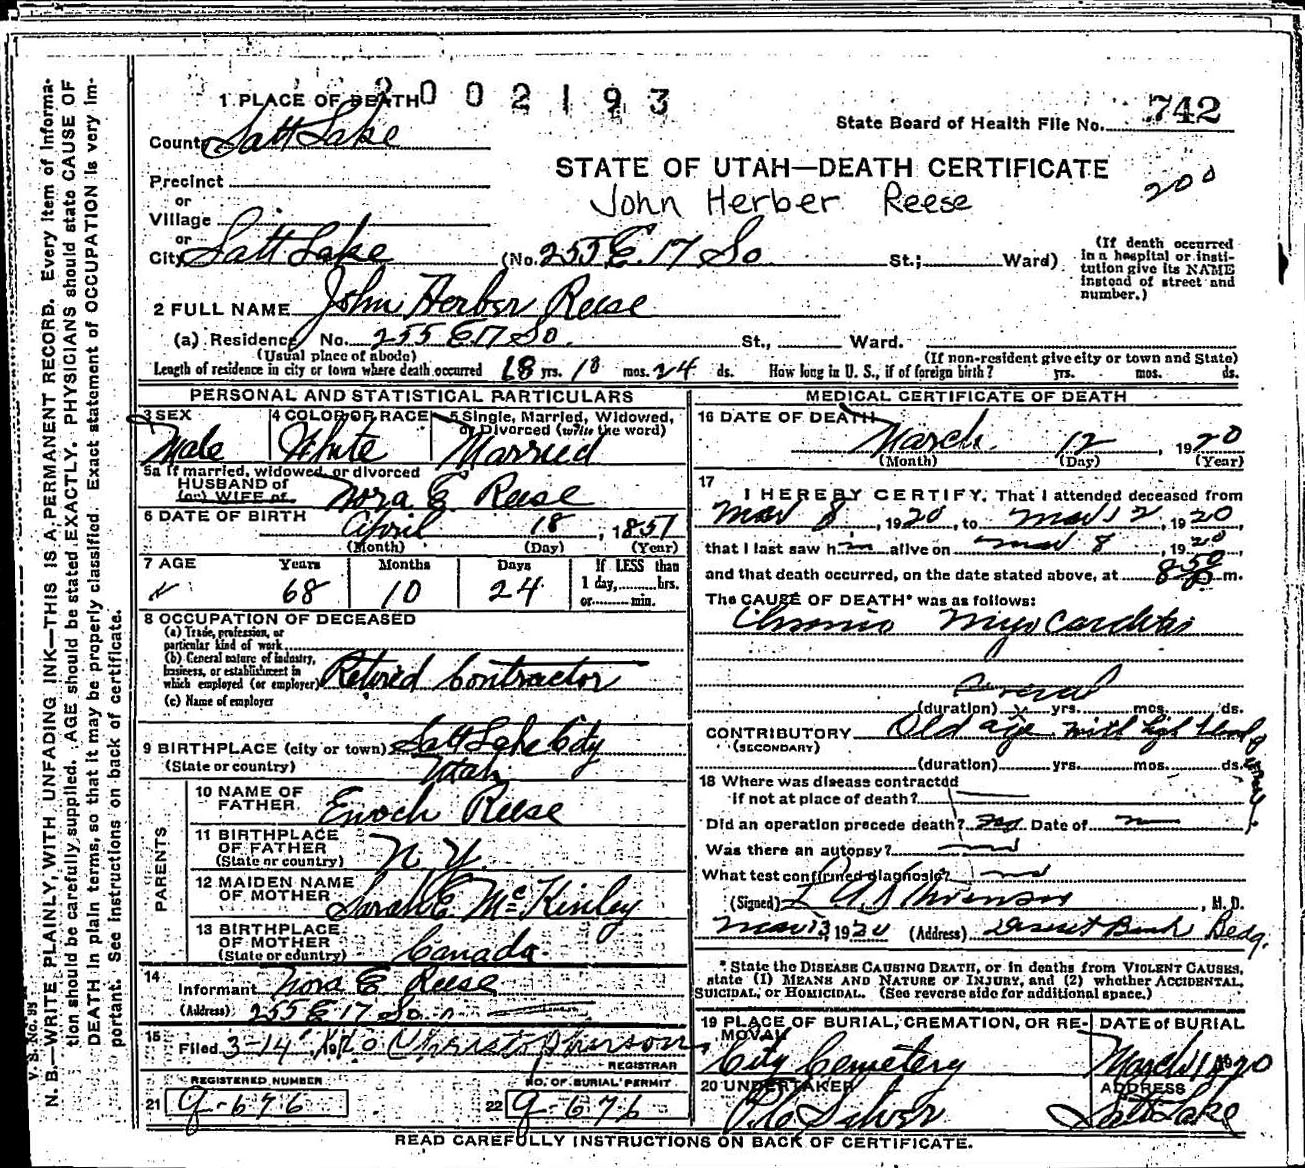 2002193
1 PLACE OF DEATH
State Board of Health File No. 742
County Salt Lake
STATE OF UTAH—DEATH CERTIFICATE
200
Precinct
John Herber Reese
or
Village
or
City Salt Lake (No. 255 E. 17 So. St.; Ward)
(If death occurred in a hospital or institution give its NAME instead of street and number.)
2 FULL NAME John Herber Reese
(a) Residence No. 255 E 17 So. St., Ward.
(Usual place of abode) (If non-resident give city or town and State)
Length of residence in city or town where death occurred 68 yrs. 10 mos. 24 ds. How long in U. S., if of foreign birth? yrs. mos. ds.
PERSONAL AND STATISTICAL PARTICULARS
3 SEX 4 COLOR OR RACE 5 Single, Married, Widowed,
or Divorced (write the word)
Male White Married
5a If married, widowed, or divorced
HUSBAND of
(or) WIFE of Nora E Reese
6 DATE OF BIRTH April 18, 1851
(Month) (Day) (Year)
7 AGE Years Months Days If LESS than
68 10 24 1 day, hrs.
or min.
8 OCCUPATION OF DECEASED
(a) Trade, profession, or
particular kind of work
(b) General nature of industry,
business, or establishment in
which employed (or employer) Retired Contractor
(c) Name of employer
9 BIRTHPLACE (city or town) Salt Lake City
(State or country) Utah
PARENTS
10 NAME OF
FATHER Enoch Reese
11 BIRTHPLACE
OF FATHER N. Y.
(State or country)
12 MAIDEN NAME
OF MOTHER Sarah E. McKinley
13 BIRTHPLACE
OF MOTHER Canada
(State or country)
14
Informant Nora E Reese
(Address) 255 E 17 So.
15
Filed 3-14, 1920 Christopherson
REGISTRAR
REGISTERED NUMBER NO. OF BURIAL PERMIT
21 G-676 22 G-676
MEDICAL CERTIFICATE OF DEATH
16 DATE OF DEATH
March 12, 1920
(Month) (Day) (Year)
17
I HEREBY CERTIFY, That I attended deceased from
Mar 8, 1920, to Mar 12, 1920,
that I last saw him alive on Mar 8, 1920,
and that death occurred, on the date stated above, at 8 50 m.
The CAUSE OF DEATH* was as follows:
Chronic Myocarditis
Several
(duration) yrs. mos. ds.
CONTRIBUTORY Old age with high blood
(SECONDARY)
(duration) yrs. mos. ds.
18 Where was disease contracted
if not at place of death?
Did an operation precede death? no Date of
Was there an autopsy?
What test confirmed diagnosis?
(Signed) M. D.
Mar 13, 1920 (Address) Deseret Bank Bldg.
* State the DISEASE CAUSING DEATH, or in deaths from VIOLENT CAUSES,
state (1) MEANS AND NATURE OF INJURY, and (2) whether ACCIDENTAL,
SUICIDAL, or HOMICIDAL. (See reverse side for additional space.)
19 PLACE OF BURIAL, CREMATION, OR RE- DATE of BURIAL
MOVAL
City Cemetery March 1920
20 UNDERTAKER ADDRESS
Silver Salt Lake
READ CAREFULLY INSTRUCTIONS ON BACK OF CERTIFICATE.
N. B.—WRITE PLAINLY, WITH UNFADING INK—THIS IS A PERMANENT RECORD. Every item of informa-
tion should be carefully supplied. AGE should be stated EXACTLY. PHYSICIANS should state CAUSE OF
DEATH in plain terms, so that it may be properly classified. Exact statement of OCCUPATION is very im-
portant. See instructions on back of certificate.